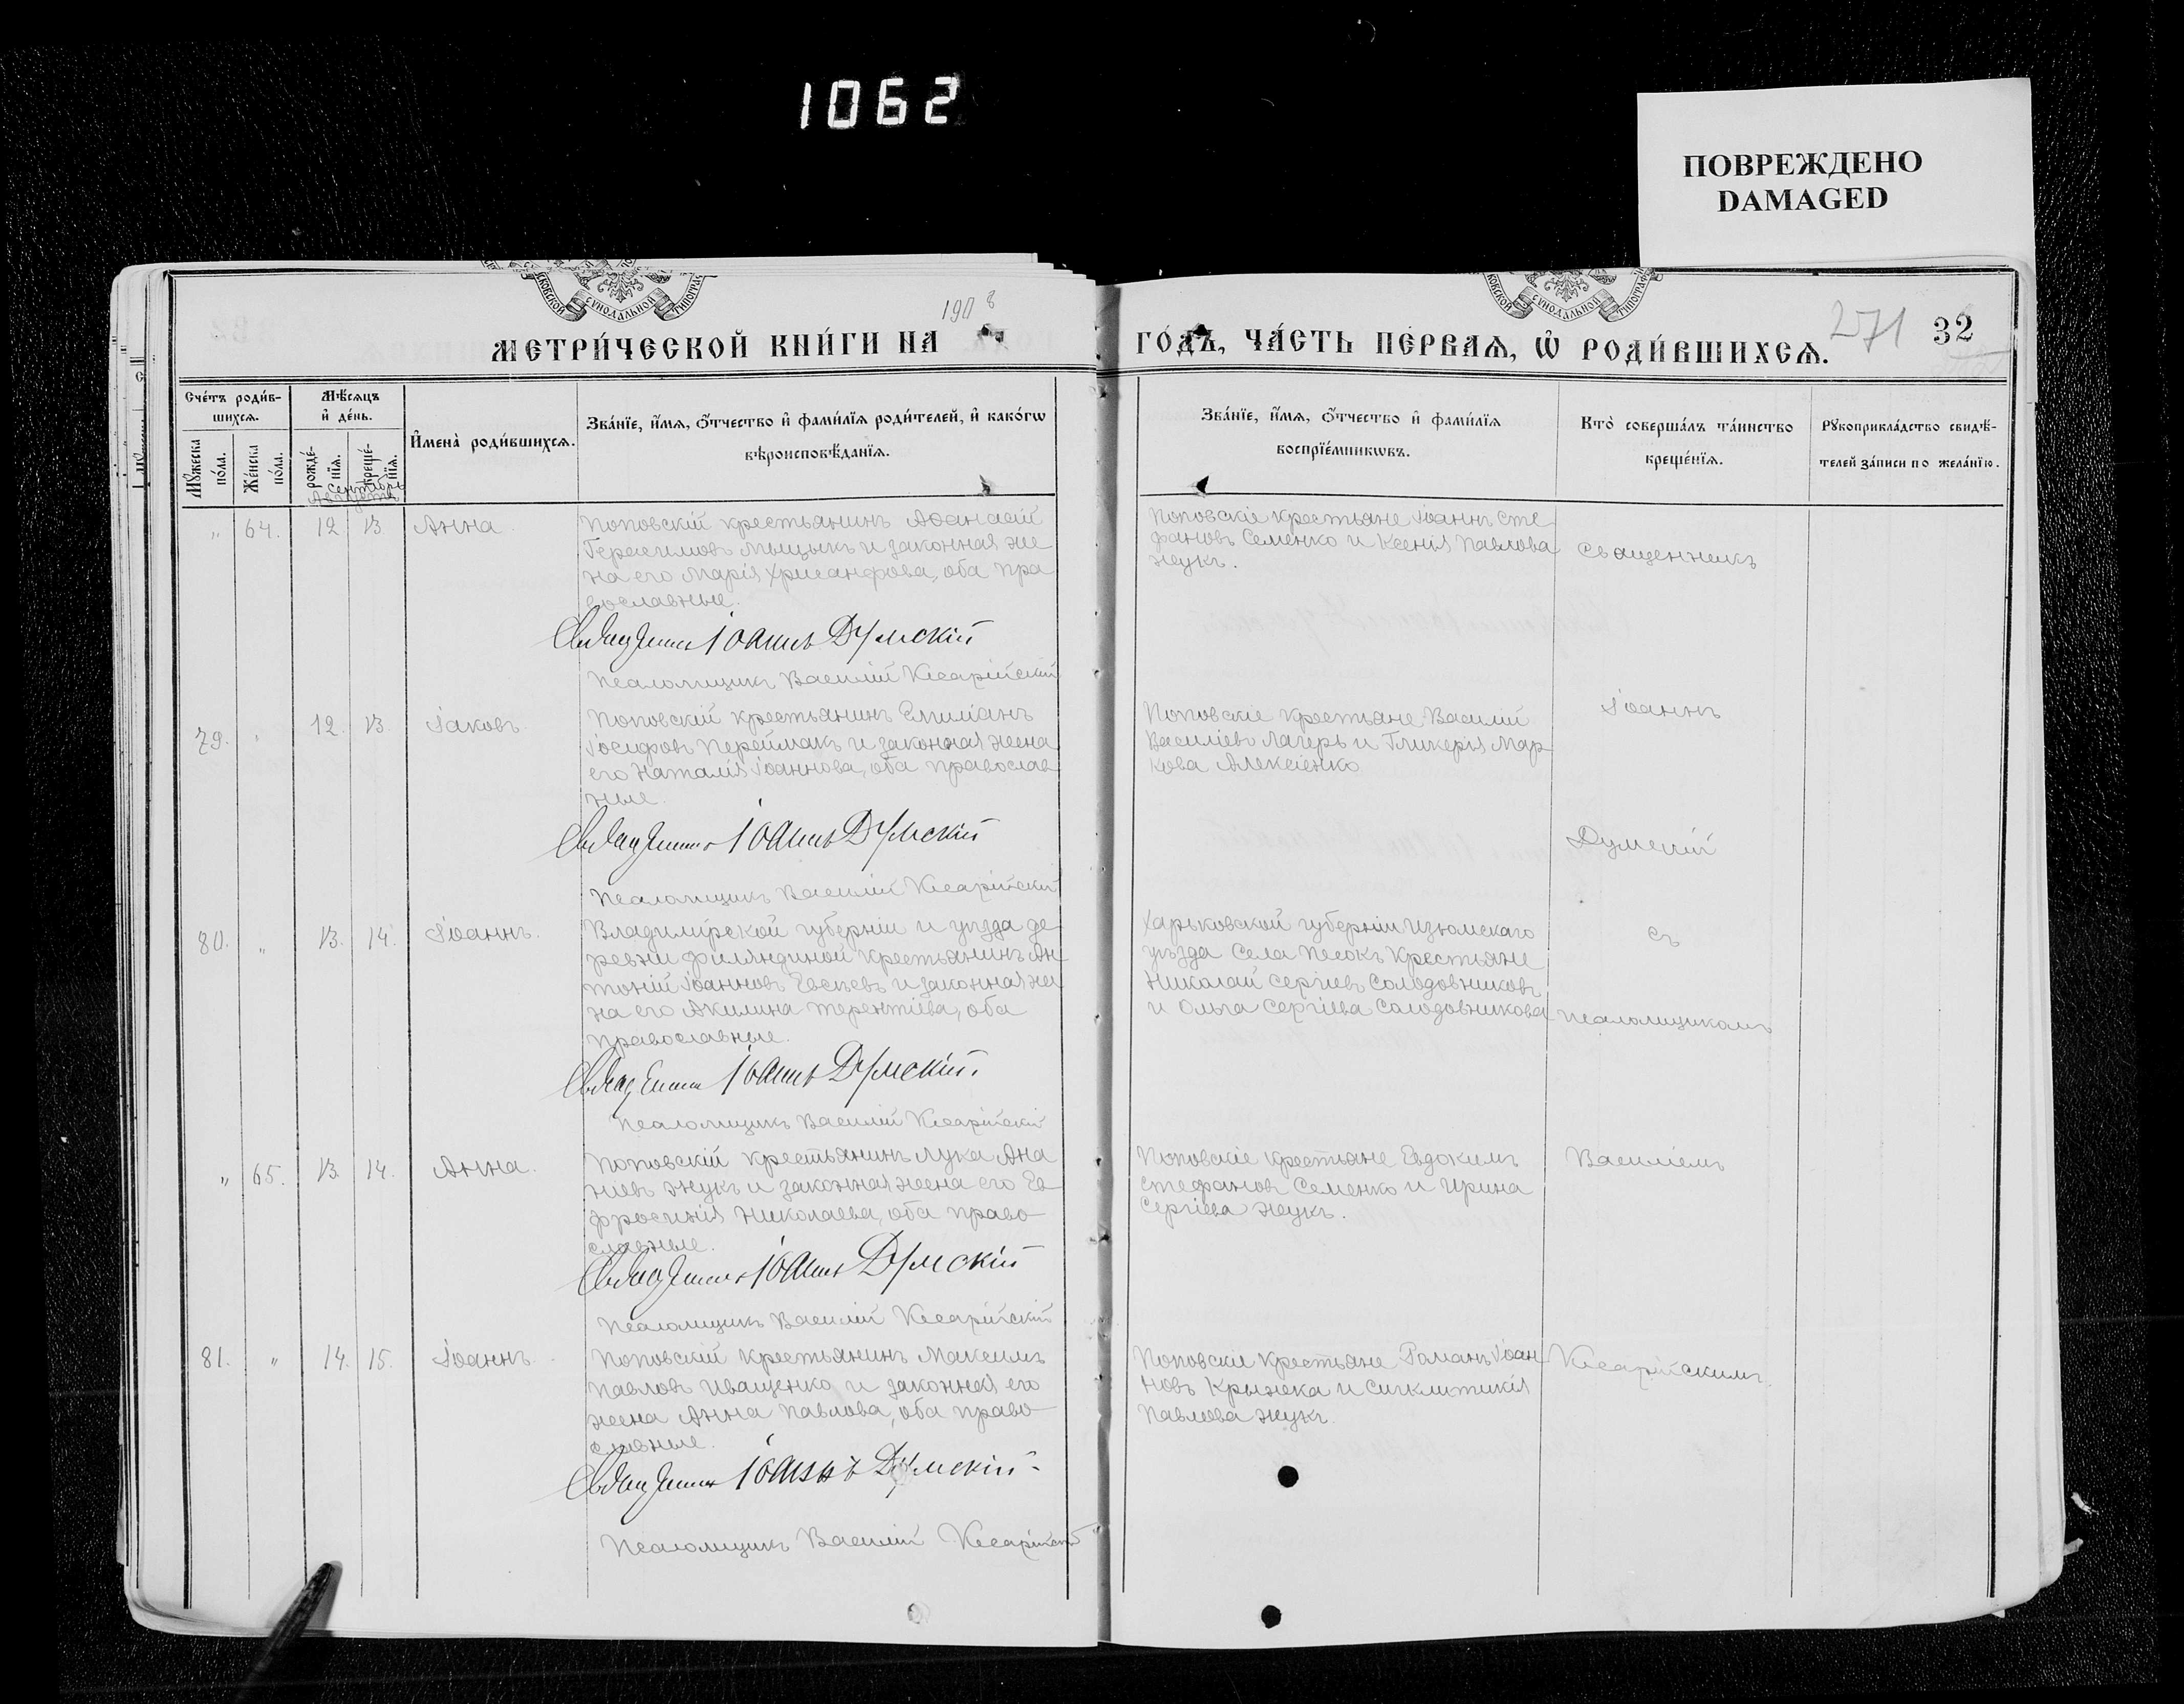 1062
ПОВРЕЖДЕНО
DAMAGED
МЕТРИ́ЧЕСКОЙ КНИ́ГИ НА 1908
ГО́ДЪ, ЧА́СТЬ ПЕ́РВАЯ, Ѡ҆ РОДИ́ВШИХСЯ.
271 32
Сче́тъ роди́в-
шихся.
Мꙋ́жеска
по́ла.
Же́нска
по́ла.
Мѣ́сяцъ
и҆ де́нь.
рожде́-
нїя.
креще́-
нїя.
Сентябрь
Августъ
И҆мена̀ роди́вшихся.
Зва́нїе, и҆́мя, ѻ҆́тчество и҆ фами́лїя роди́телей, и҆ како́гѡ
вѣроисповѣ́данїя.
Зва́нїе, и҆́мя, ѻ҆́тчество и҆ фами́лїя
воспрїе́мникѡвъ.
Кто̀ соверша́лъ та́инство
креще́нїя.
Рꙋкоприкла́дство свидѣ́-
телей за́писи по жела́нїю.
" 64. 12. 13. Анна.
Поповскій крестьянинъ Аѳанасій
Герасимовъ Мыцыкъ и законная же-
на его Марія Хрисанфова, оба пра-
вославные.
Священникъ Іоаннъ Думскій
Псаломщикъ Василій Кесарійскій
Поповскіе крестьяне Іоаннъ Сте-
фановъ Семенко и Ксенія Павлова
Жукъ.
Священникъ
79. " 12. 13. Іаковъ.
Поповскій крестьянинъ Емиліанъ
Іосифовъ Переймакъ и законная жена
его Наталія Іоаннова, оба православ-
ные.
Священникъ Іоаннъ Думскій
Псаломщикъ Василій Кесарійскій
Поповскіе крестьяне Василій
Василіевъ Лагерь и Гликерія Мар-
кова Алексіенко
Іоаннъ
Думскій
80. " 13. 14. Іоаннъ.
Владимірской губерніи и уѣзда де-
ревни Филяндиной крестьянинъ Ан-
тоній Іоанновъ Евсѣевъ и законная же-
на его Акилина Терентіева, оба
православные.
Священникъ Іоаннъ Думскій.
Псаломщикъ Василій Кесарійскій
Харьковской губерніи Изюмскаго
уѣзда села Песокъ крестьяне
Николай Сергіевъ Солодовниковъ
и Ольга Сергіева Солодовникова
съ
псаломщикомъ
" 65. 13. 14. Анна.
Поповскій крестьянинъ Лука Ана-
ніевъ Жукъ и законная жена его Ев-
фросинія Николаева, оба право-
славные.
Священникъ Іоаннъ Думскій
Псаломщикъ Василій Кесарійскій
Поповскіе крестьяне Евдокимъ
Стефановъ Семенко и Ирина
Сергіева Жукъ.
Василіемъ
81. " 14. 15. Іоаннъ.
Поповскій крестьянинъ Максимъ
Павловъ Иващенко и законная его
жена Анна Павлова, оба право-
славные.
Священникъ Іоаннъ Думскій
Псаломщикъ Василій Кесарійскій
Поповскіе крестьяне Романъ Іоан-
новъ Крыжека и Сигклитикія
Павлова Жукъ.
Кесарійскимъ.